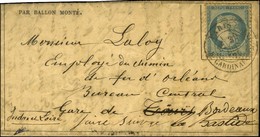 PAR BALLON MONTÉ.
Monsieur Laloy
Employé du chemin
de fer d'Orléans
Bureau Central
Gare de Tours Bordeaux
Indre et Loire faire suivre la Bastide